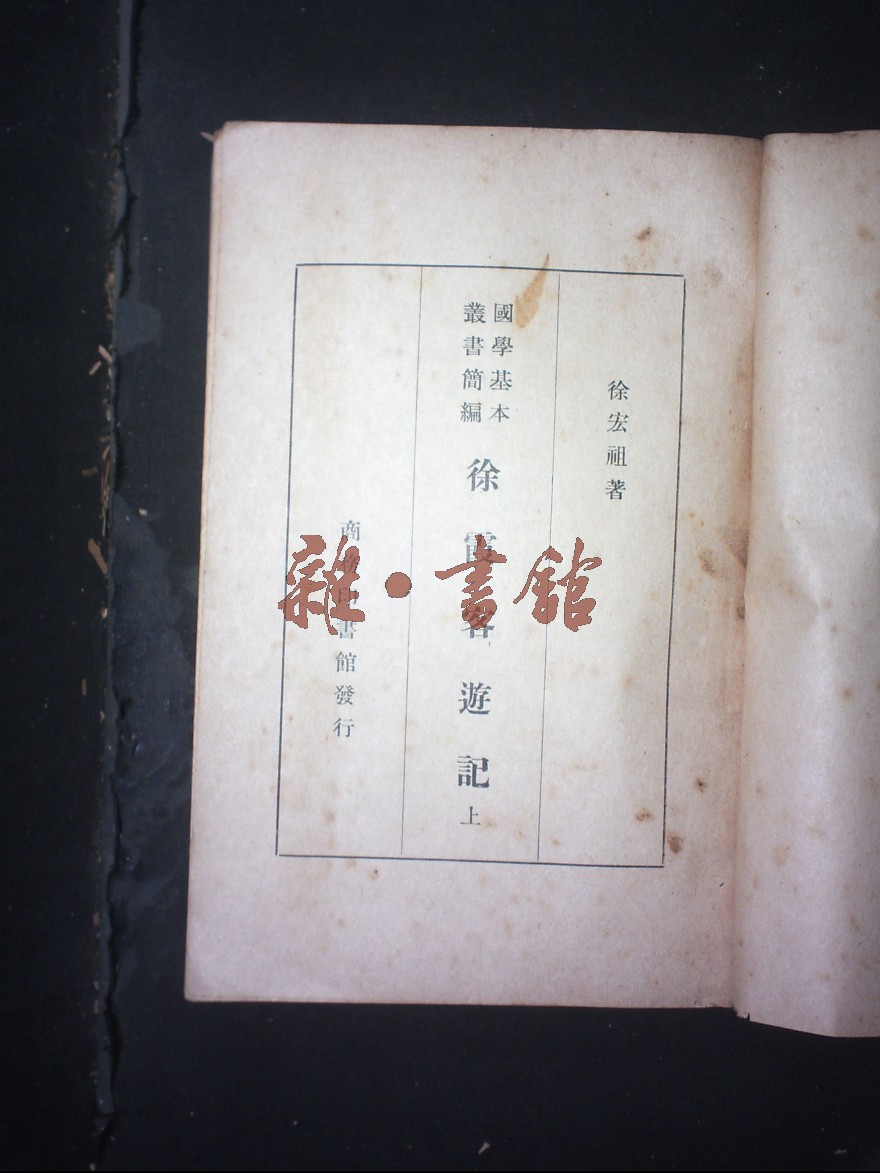 徐宏祖著
國學基本
叢書簡編
徐霞客遊記上
商務印書館發行
雜·書館